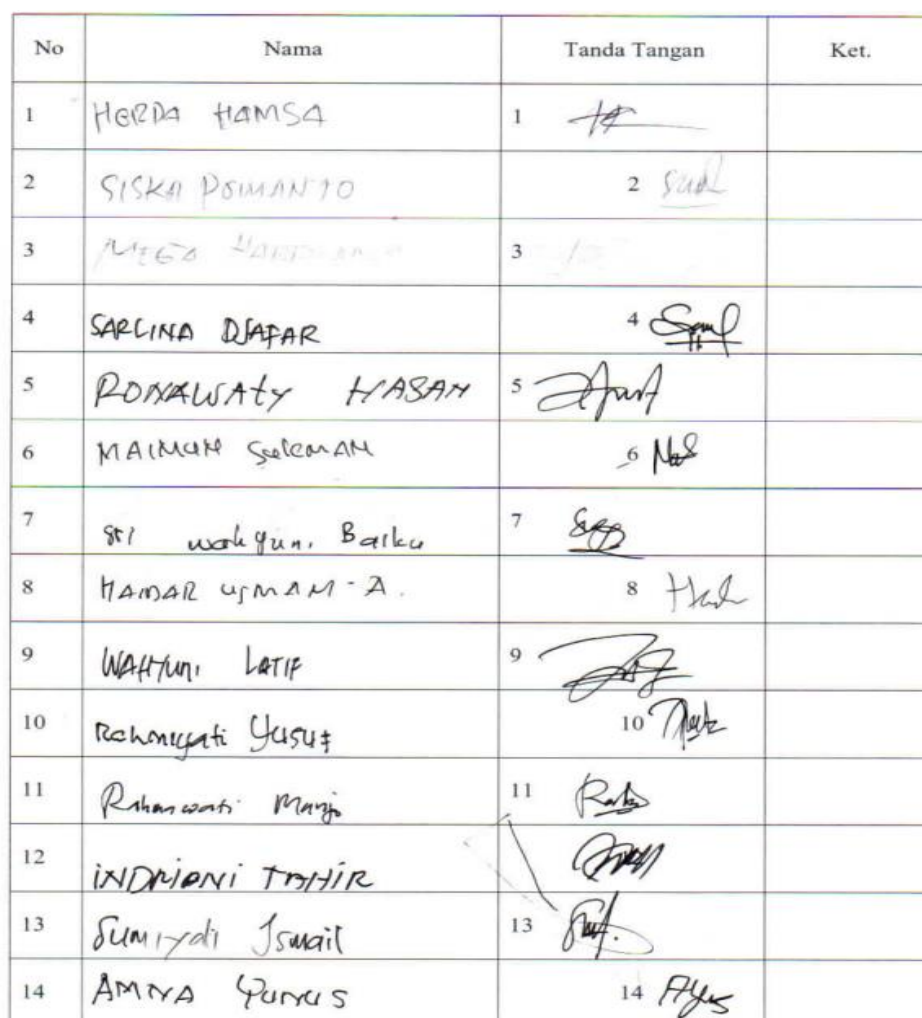 No Nama Tanda Tangan Ket.
1 HERDA HAMSA 1
2 SISKA DOMANTO 2
3 MEGA 3
4 SARLINA DJAFAR 4
5 RONAWATY HASAN 5
6 MAIMUN SULEMAN 6
7 Sri wahyuni Baiku 7
8 HADAR USMAN A. 8
9 WAHYUNI LATIF 9
10 Rahmiyati Yusuf 10
11 Rahmawati Manjo 11
12 INDRIANI TAHIR
13 Sumiyati Ismail 13
14 AMNA YUNUS 14